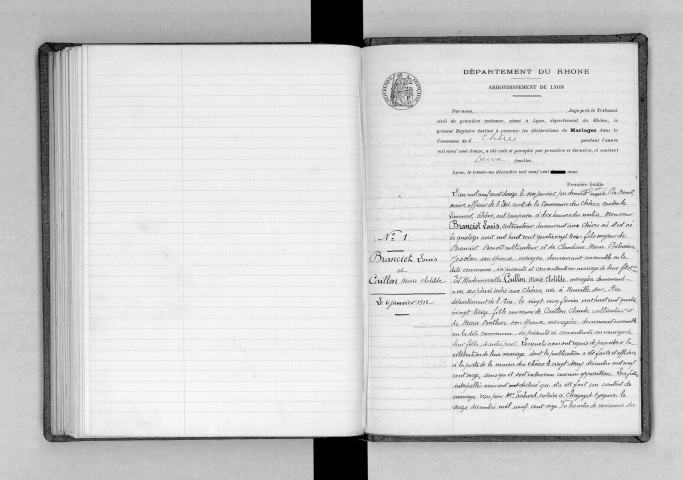 DÉPARTEMENT DU RHONE
ARRONDISSEMENT DE LYON
Par nous, Juge près le Tribunal
civil de première instance, séant à Lyon, département du Rhône, le
présent Registre destiné à recevoir les déclarations de Mariages dans la
Commune de Chères pendant l'année
mil neuf cent douze, a été coté et paraphé par première et dernière, et contient
Deux feuilles.
Lyon, le trente-un décembre mil neuf cent onze.
Première feuille
N° 1
Branciot Louis
et
Caillon Marie Clotilde
Le 6 janvier 1912
L'an mil neuf cent douze le six janvier, par devant nous Benoit
maire officier de l'état civil de la Commune des Chères, canton de
Limonest, Rhône, ont comparu à dix heures du matin, Monsieur
Branciot Louis, cultivateur demeurant aux Chères où il est né
le mil huit cent quatre vingt trois fils majeur de
Branciot Benoit cultivateur et de Claudine Marie Philomène
son épouse ménagère demeurant ensemble en la
dite commune, ici présents et consentants au mariage de leur fils
Et Mademoiselle Caillon Marie Clotilde, ménagère demeurant
avec ses père et mère aux Chères, née à Neuville sur Ain
département de l'Ain, le vingt cinq février mil huit cent quatre
vingt treize fille mineure de Caillon Claude cultivateur et
de Marie son épouse ménagère, demeurant ensemble
en la dite commune, ici présents et consentants au mariage de
leur fille, d'autre part. Lesquels nous ont requis de procéder à la
célébration de leur mariage dont la publication a été faite et affichée
à la porte de la mairie des Chères le vingt décembre mil neuf
cent onze, sans qu'il soit survenu aucune opposition. Les futurs
interpellés nous ont déclaré qu'il a été fait un contrat de
mariage reçu par Me notaire à Chazay d'Azergues le
seize décembre mil neuf cent onze